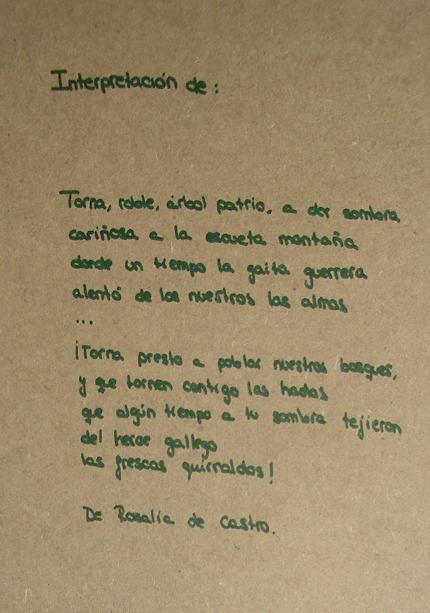 Interpretación de:
Torna, roble, árbol patrio, a dar sombra
cariñosa a la escueta montaña
donde un tiempo la gaita guerrera
alentó de los nuestros las almas
...
¡Torna presto a poblar nuestros bosques,
y que tornen contigo las hadas
que algún tiempo a tu sombra tejieron
del heroe gallego
las frescas guirnaldas!
De Rosalía de Castro.